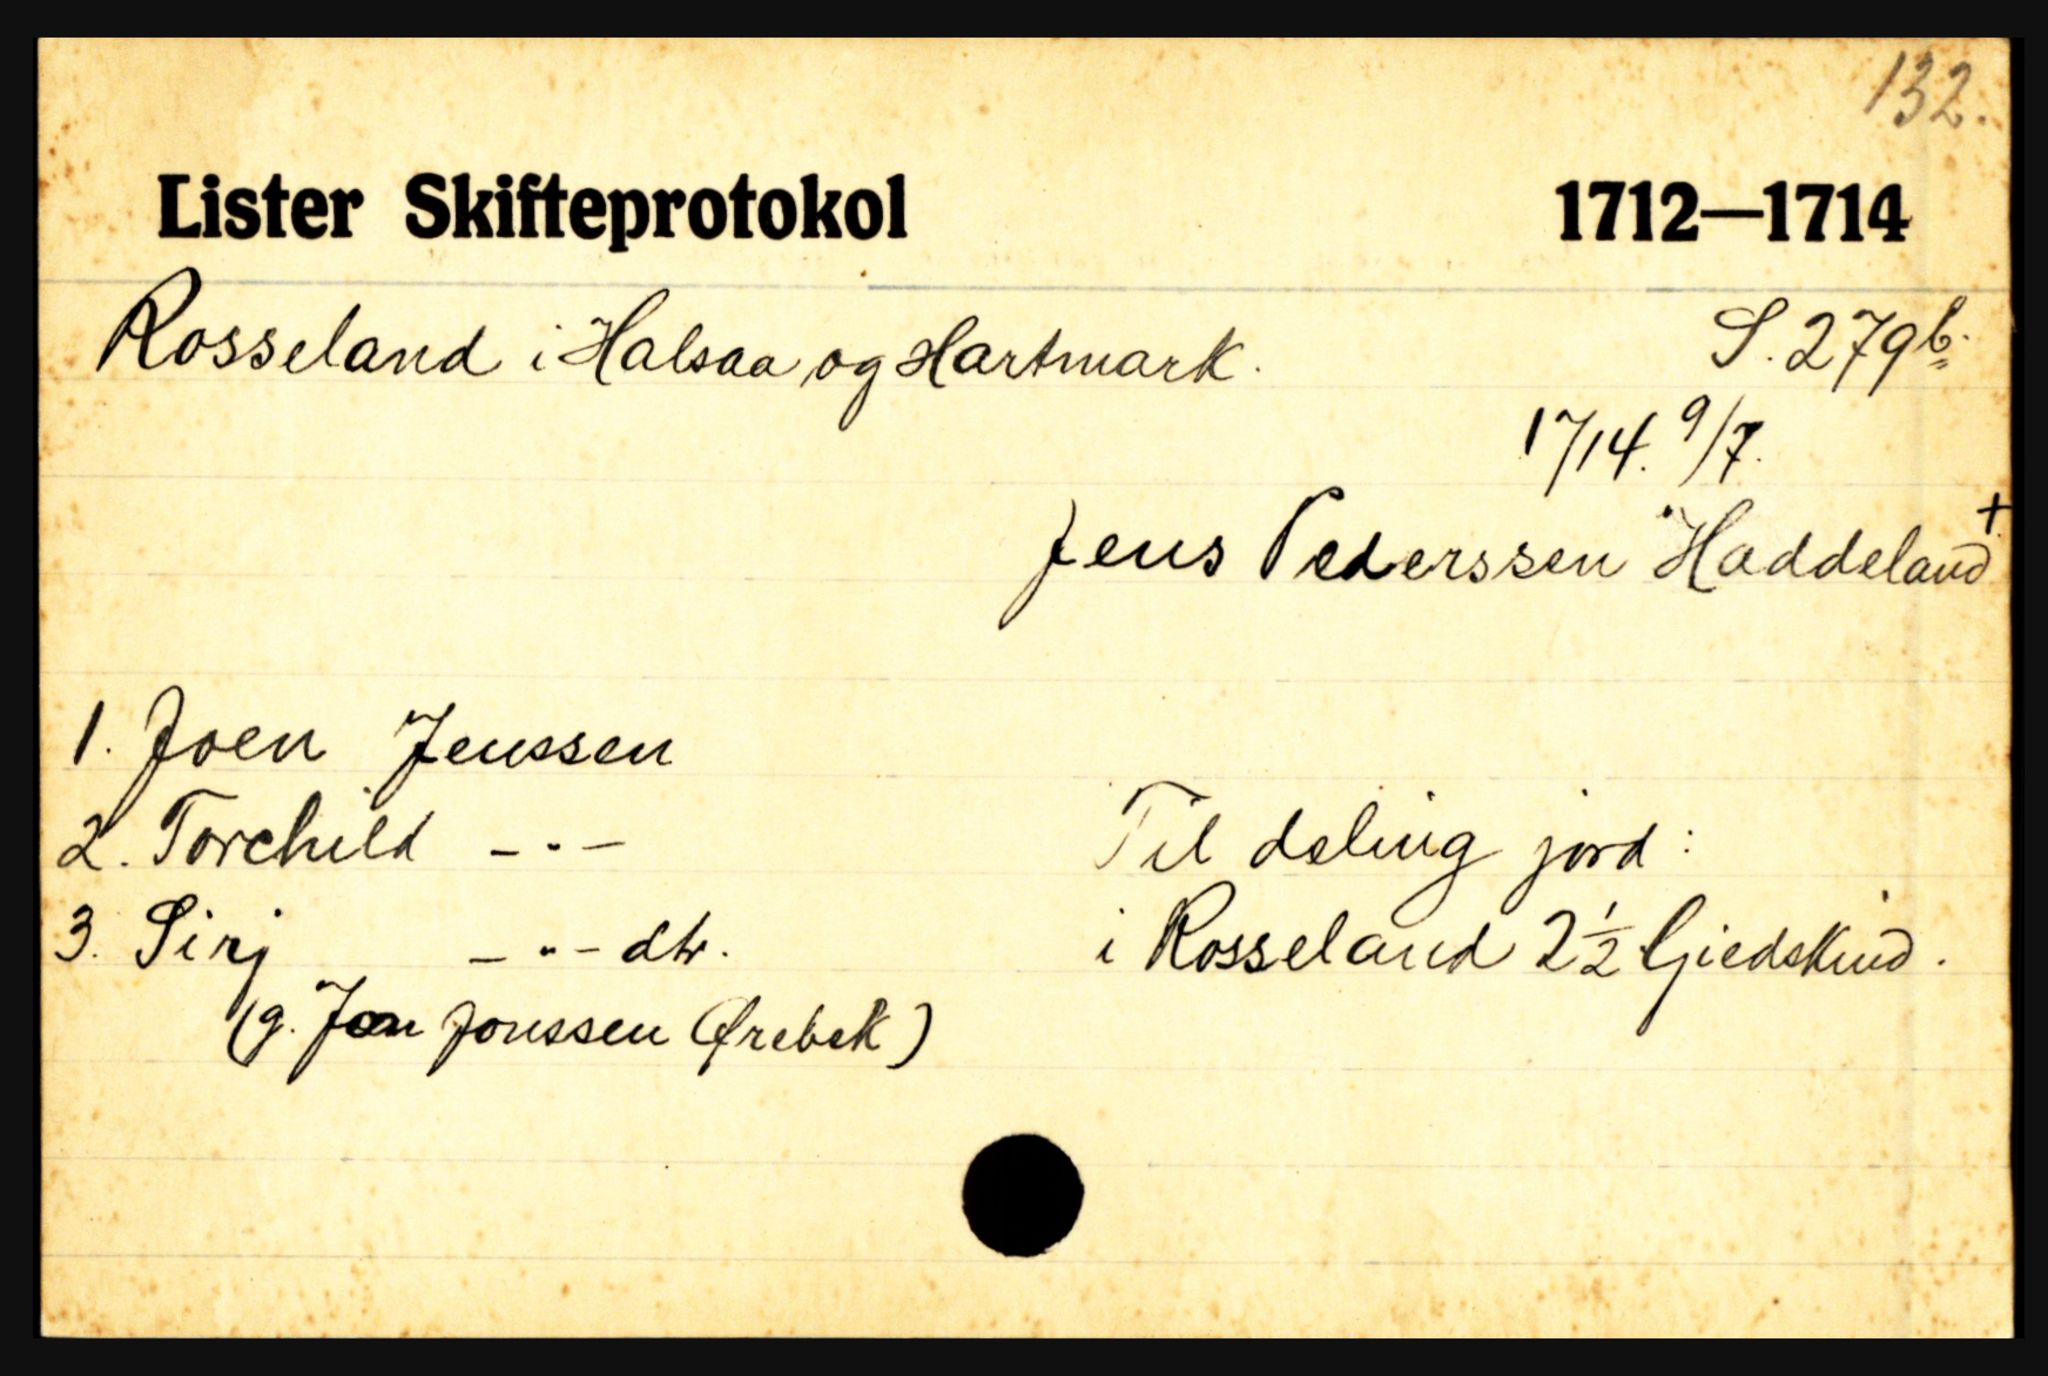 132.
Lister Skifteprotokol 1712—1714
Rosseland i Halsaa og Hartmark. S. 279b.
1714. 9/7.
Jens Pederssen Haddeland +
1. Joen Jenssen
2. Torchild - " - Til deling jord:
3. Sirj - " - dtr. i Rosseland 2 1/2 Giedskind.
(g. Jon Jonssen Ørebek)